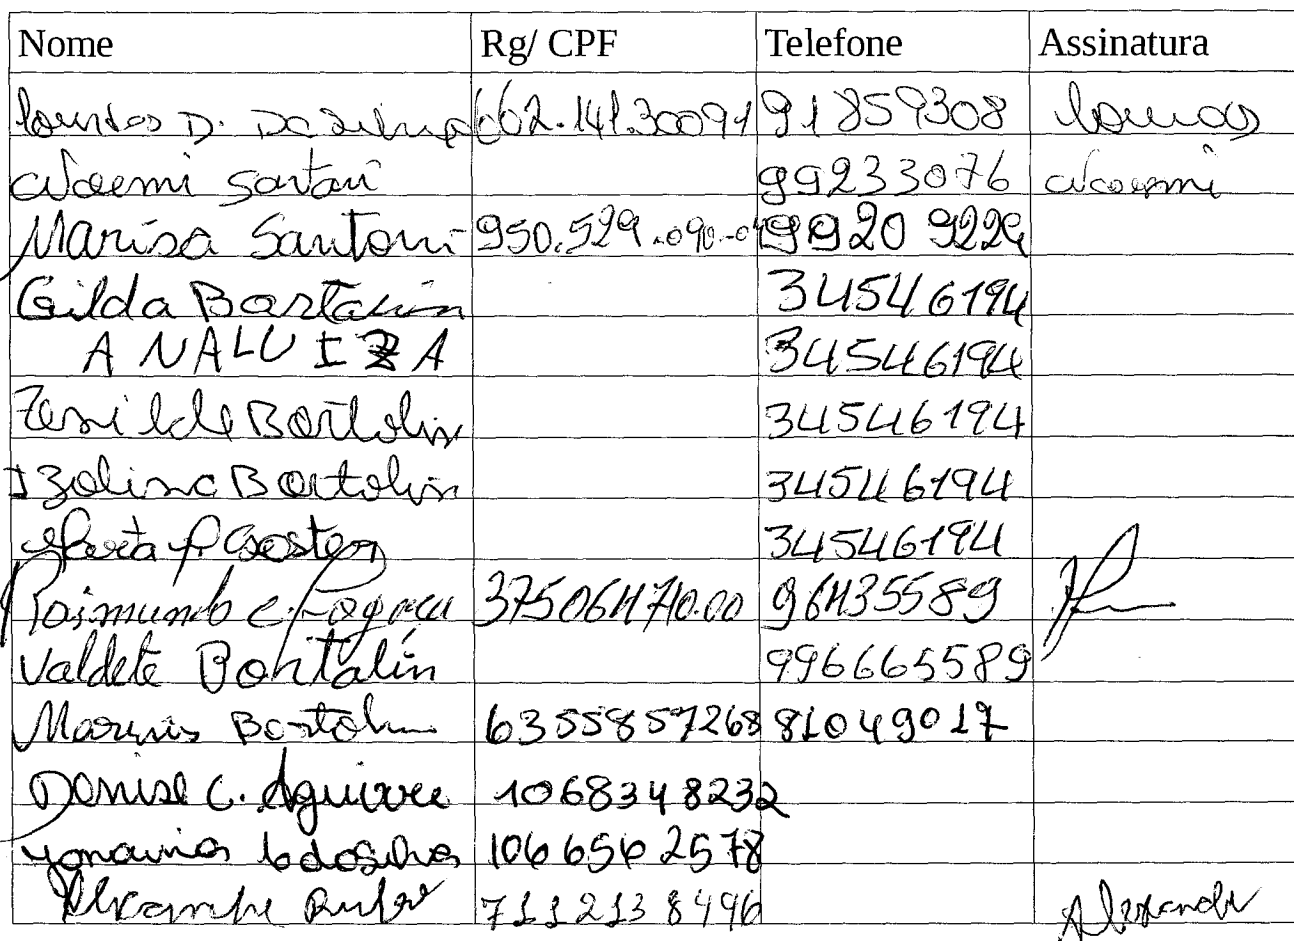 Nome Rg/ CPF Telefone Assinatura
Lourdes D. Da Silva 662.141.30091 91859308 Lourdes
Noemi Sartori 99233076 Noemi
Marisa Santoni 950.529.090-04 9920 9224
Gilda Bortolin 34546194
ANALUIZA 34546194
Zenilde Bortolin 34546194
Izolina Bortolin 34546194
34546194
Raimundo 375064710.00 96435589
Valdete Bortolin 996665589
Bortolin 6355857268 81049017
Denise C. Aguirre 1068348232
da Silva 1066562578
Alexandre 7112138496 Alexandre